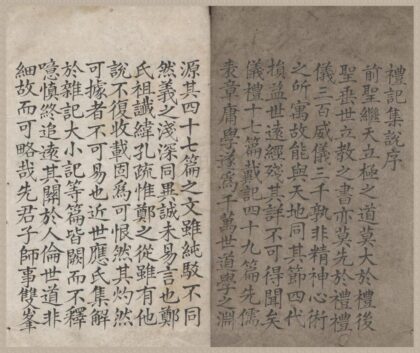 禮記集說序
前聖繼天立極之道莫大於禮後
聖垂世立教之書亦莫先於禮禮
儀三百威儀三千孰非精神心術
之所寓故能與天地同其節四代
損益世遠經殘其詳不可得聞矣
儀禮十七篇戴記四十九篇先儒
表章庸學遂爲千萬世道學之淵
源其四十七篇之文雖純駁不同
然義之淺深同異誠未易言也鄭
氏祖讖緯孔疏惟鄭之從雖有他
說不復收載固爲可恨然其灼然
可據者不可易也近世應氏集解
於雜記大小記等篇皆闕而不釋
噫愼終追遠其關於人倫世道非
細故而可略哉先君子師事雙峯